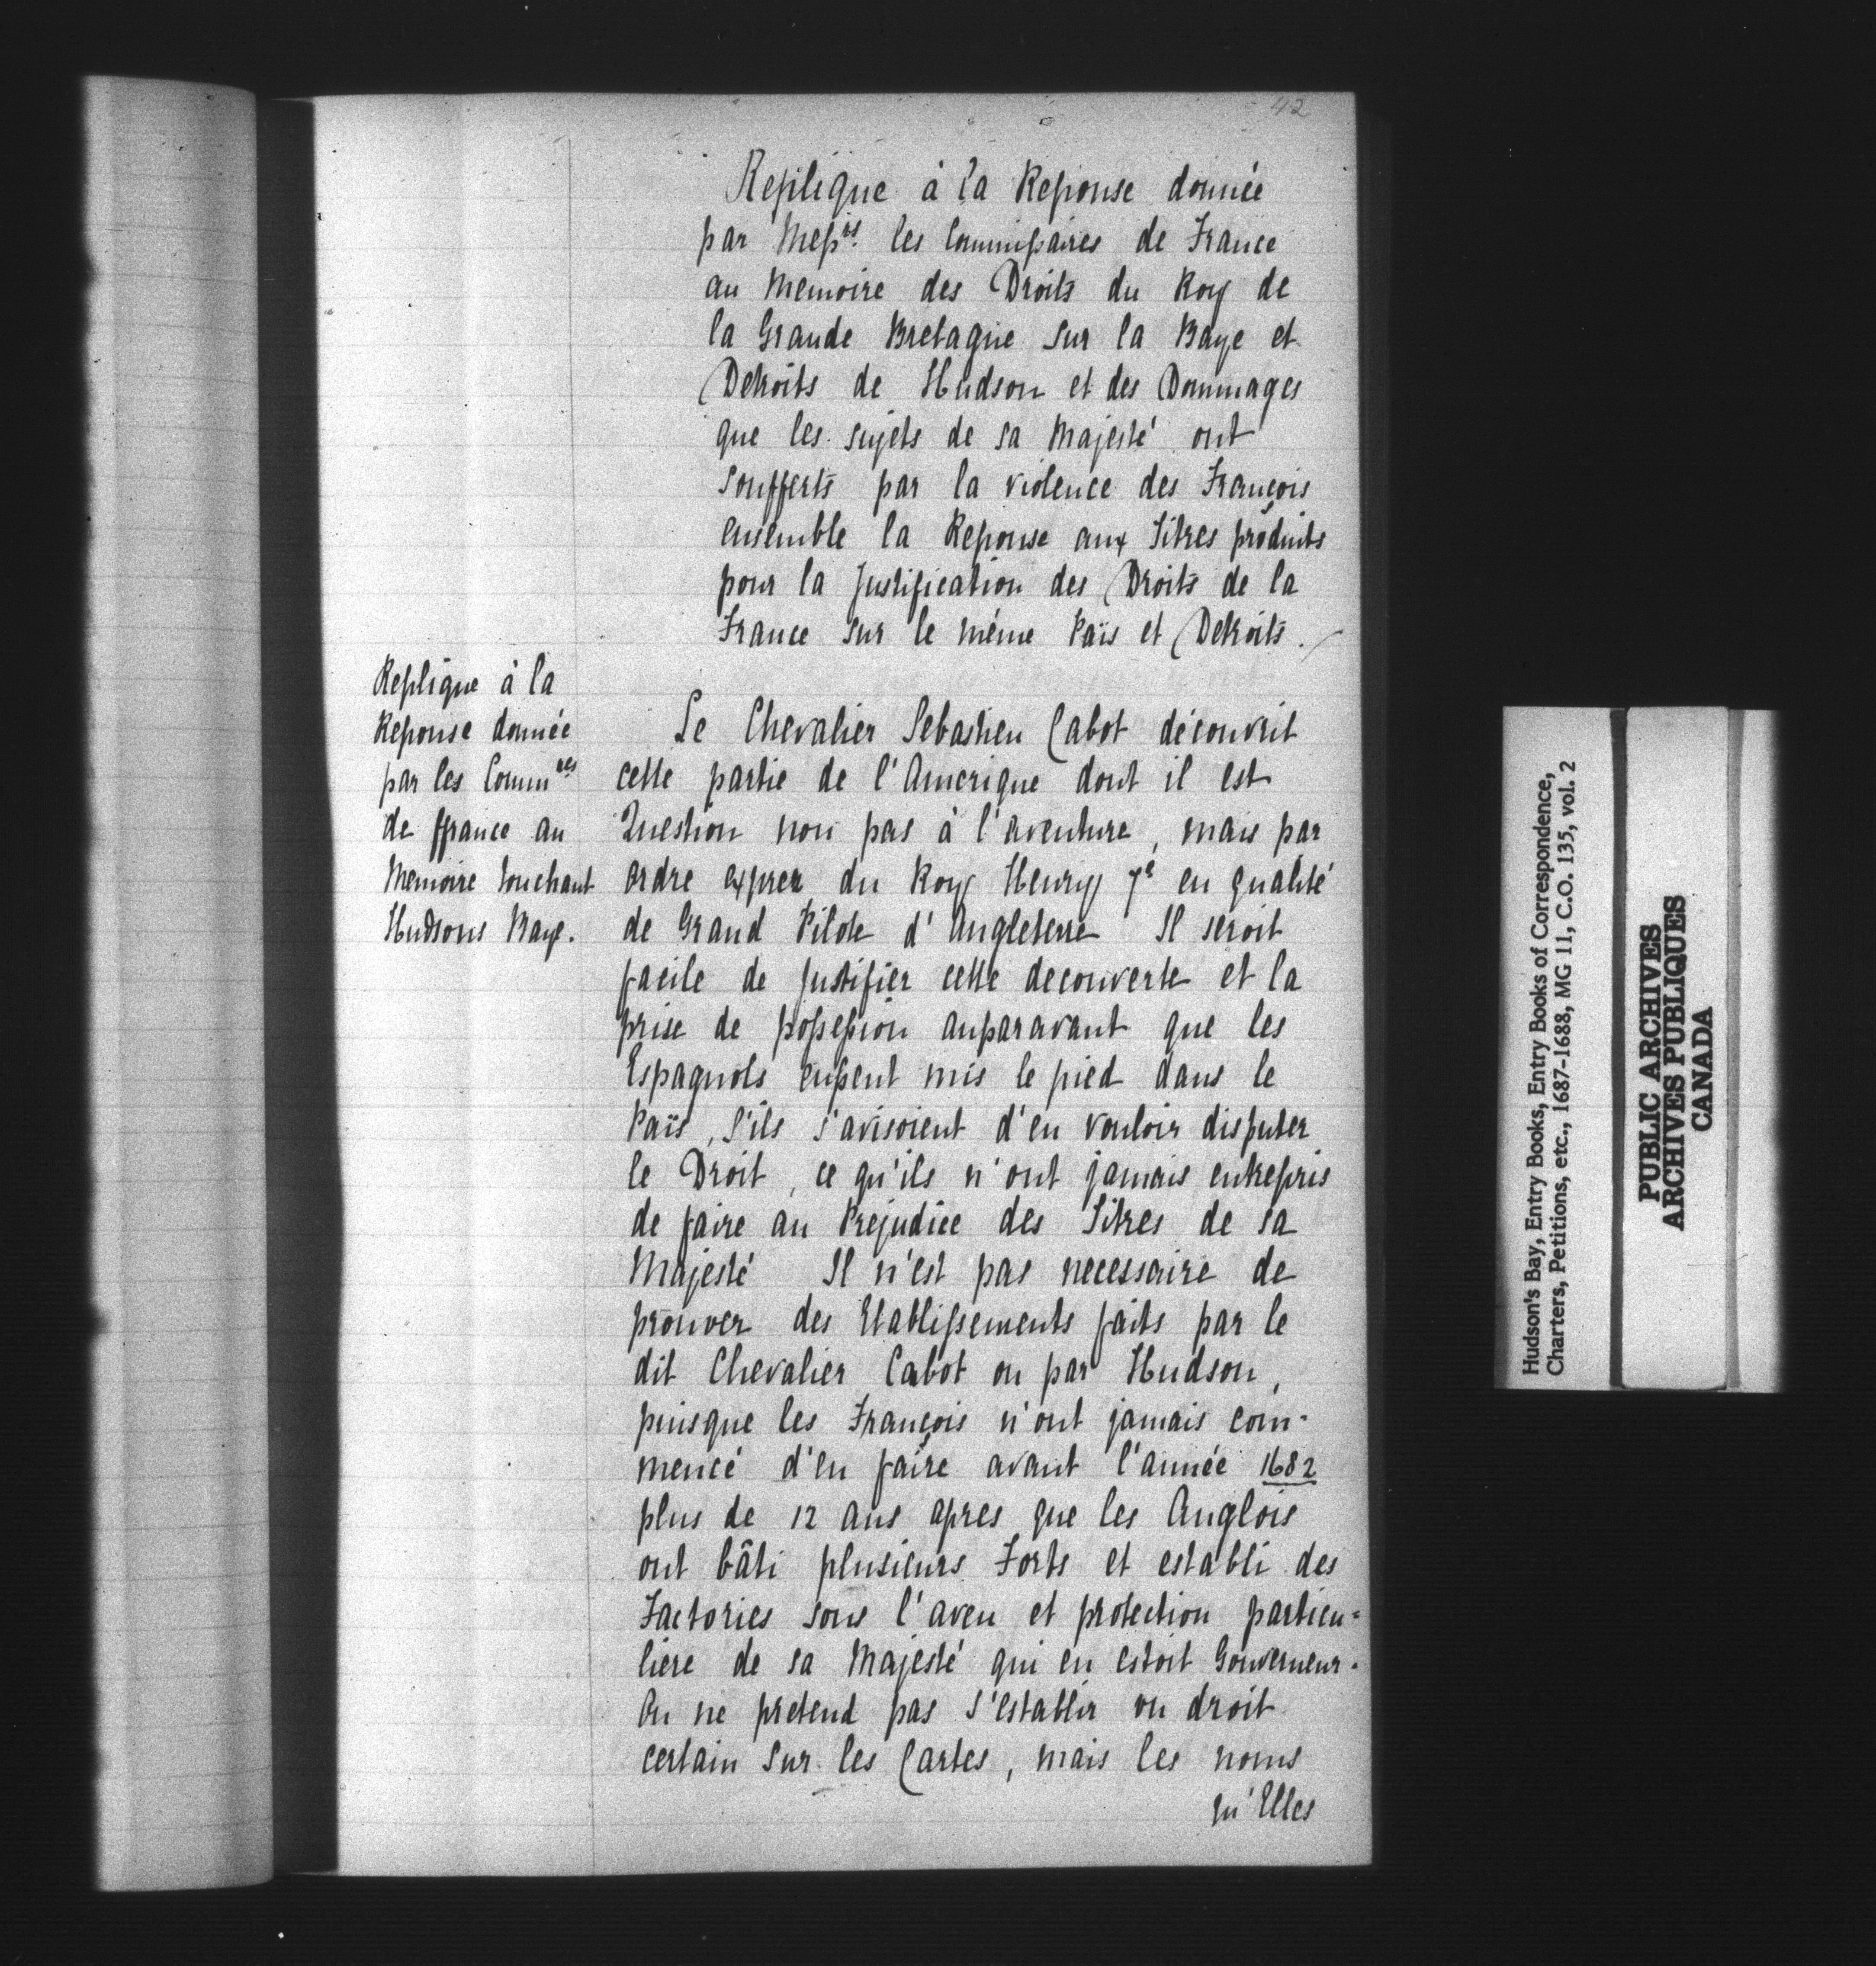 42
Replique à la Reponse donnée
par Messrs. les Commissaires de France
au Memoire des Droits du Roy de
la Grande Bretagne sur la Baye et
Detroits de Hudson et des Dommages
que les sujets de sa Majesté ont
soufferts par la violence des François
ensemble la Reponse aux Titres produits
pour la Justification des Droits de la
France sur le même Païs et Detroits.
Replique à la
Reponse donnée
par les Commres
de ffrance au
Memoire touchant
Hudsons Baye.
Le Chevalier Sebastien Cabot découvrit
cette partie de l'Amerique dont il est
Question non pas à l'aventure, mais par
ordre exprez du Roy Henry 7e en qualité
de Grand Pilote d'Angleterre Il seroit
facile de Justifier cette decouverte et la
prise de possession auparavant que les
Espagnols eussent mis le pied dans le
Païs, s'ils s'avisoient d'en vouloir disputer
le Droit, ce qu'ils n'ont jamais entrepris
de faire au Prejudice des Titres de sa
Majesté Il n'est pas necessaire de
prouver des Etablissements faits par le
dit Chevalier Cabot ou par Hudson,
puisque les François n'ont jamais com-
mencé d'en faire avant l'année 1682
plus de 12 ans apres que les Anglois
ont bâti plusieurs Forts et establi des
Factories sous l'aveu et protection particu=
liere de sa Majesté qui en estoit Gouverneur.
On ne pretend pas s'establir un droit
certain sur les Cartes, mais les noms
qu'Elles
Hudson's Bay, Entry Books, Entry Books of Correspondence,
Charters, Petitions, etc., 1687-1688, MG 11, C.O. 135, vol. 2
PUBLIC ARCHIVES
ARCHIVES PUBLIQUES
CANADA